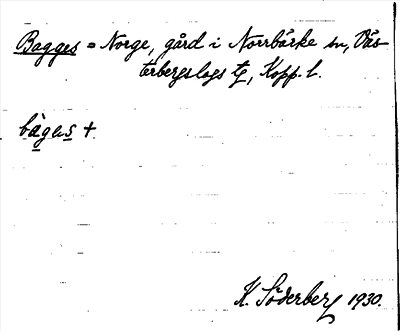 Bagges = Norge, gård i Norrbärke sn, Väs-
terbergslags tg, Kopp. l.
bàgəs +
K. Söderberg 1930.